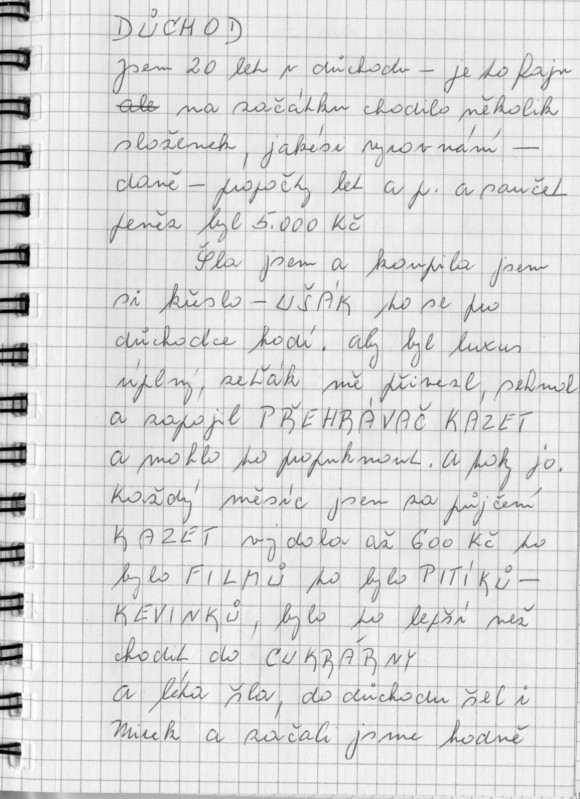 DŮCHOD
jsem 20 let v důchodu – je to fajn
ale na začátku chodilo několik
složenek, jakési vyrovnání –
daně – propočty let a p. a součet
peněz byl 5.000 Kč
Šla jsem a koupila jsem
si křeslo – UŠÁK to se pro
důchodce hodí. aby byl luxus
úplný, zeťák mě přivezl, sehnal
a zapojil PŘEHRÁVAČ KAZET
a mohlo to propuknout. A taky jo.
Každý měsíc jsem za půjčení
KAZET vydala až 600 Kč to
bylo FILMŮ to bylo PITÍKŮ –
KEVINKŮ, bylo to lepší než
chodit do CUKRÁRNY
a léta šla, do důchodu šel i
Mirek a začali jsme hodně